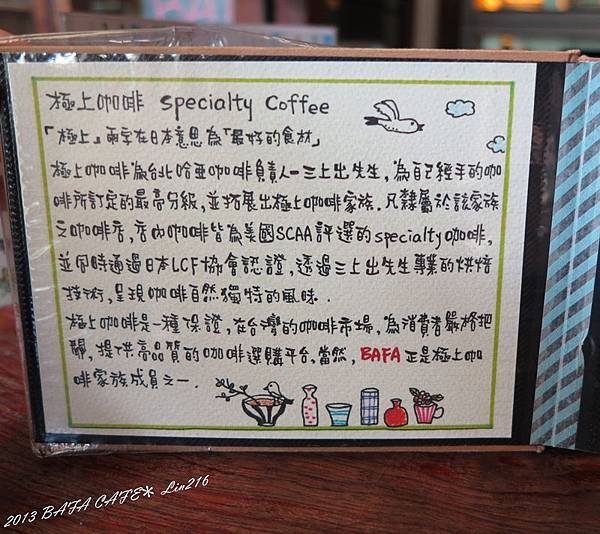 極上咖啡 Specialty Coffee
「極上」兩字在日本意思為「最好的食材」
極上咖啡為台北哈亞咖啡負責人－三上出先生，為自己經手的咖
啡所訂定的最高分級，並拓展出極上咖啡家族．凡隸屬於該家族
之咖啡店，店內咖啡皆為美國SCAA評選的specialty咖啡，
並同時通過日本LCF協會認證，透過三上出先生專業的烘焙
技術，呈現咖啡自然獨特的風味．
極上咖啡是一種保證，在台灣的咖啡市場，為消費者嚴格把
關，提供高品質的咖啡選購平台，當然，BAFA正是極上咖
啡家族成員之一．
2013 BAFA CAFE* Lin216